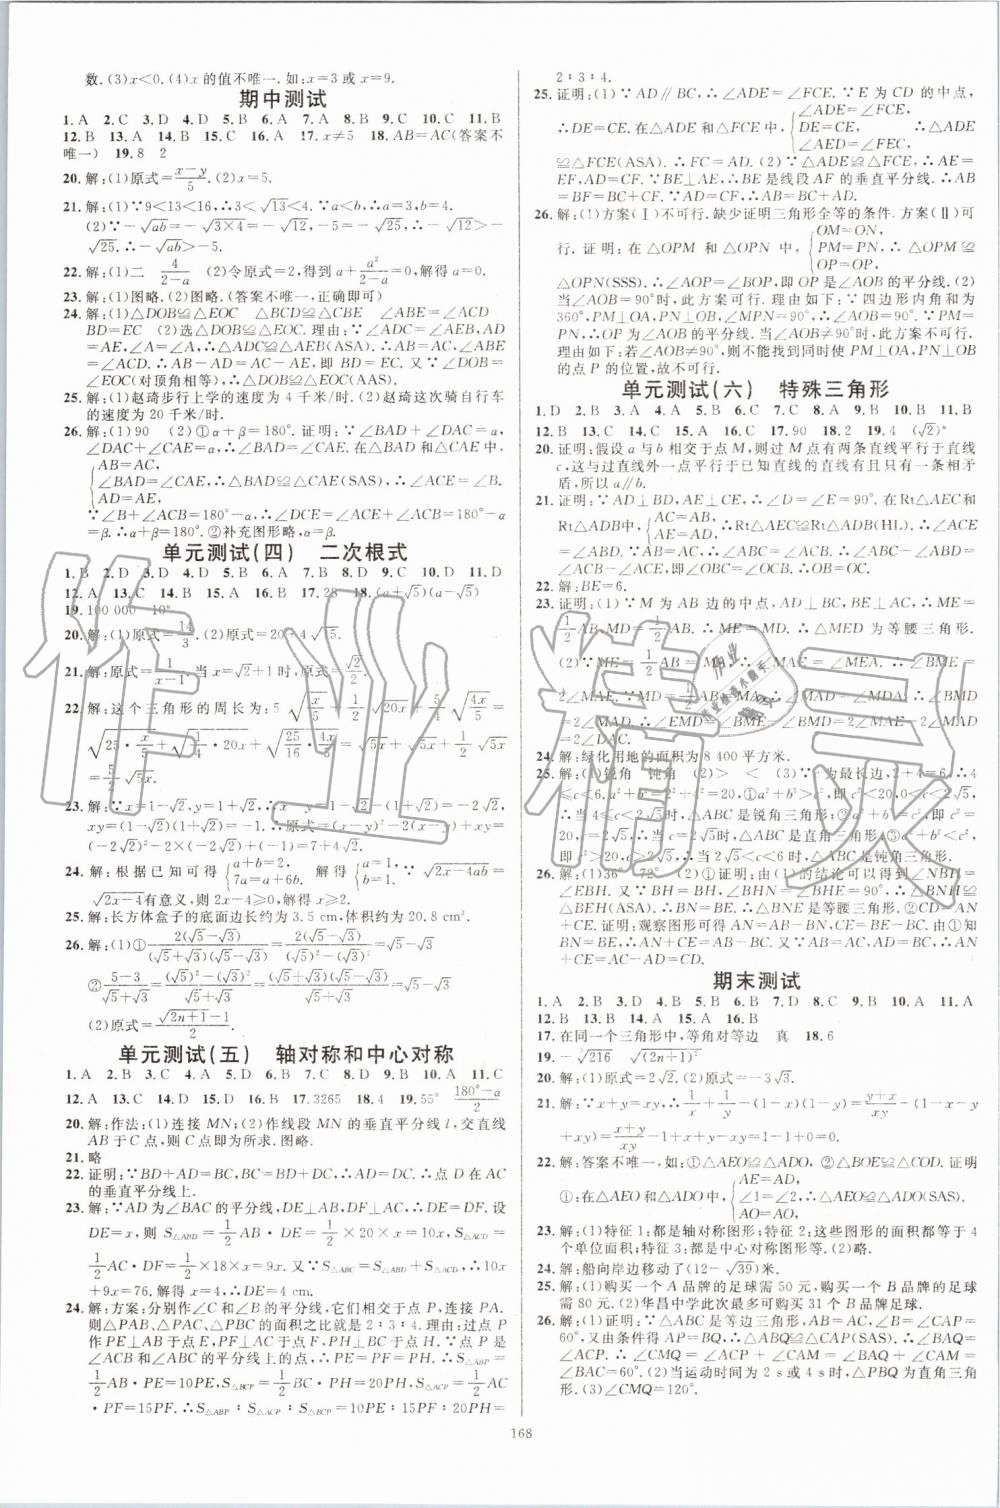 数. (3)x<0. (4)x 的值不唯一. 如:x=3 或 x=9.
期中测试
1. A 2. C 3. D 4. D 5. B 6. A 7. A 8. B 9. C 10. C 11. B
12. B 13. A 14. B 15. C 16. A 17. x≠5 18. AB=AC(答案不
唯一) 19. 8 2
20. 解:(1)原式=(x-y)/5. (2)x=5.
21. 解:(1)∵9<13<16,∴3<√13<4. ∵a<b,∴a=3,b=4.
(2)∵-√ab=-√(3×4)=-√12,-5=-√25,∴-√12>-
√25. ∴-√ab>-5.
22. 解:(1)二 4/(2-a) (2)令原式=2,得到a+a²/(2-a)=0,解得a=0.
23. 解:(1)图略. (2)图略. (答案不唯一,正确即可)
24. 解:(1)△DOB≌△EOC △BCD≌△CBE ∠ABE=∠ACD
BD=EC (2)选△DOB≌△EOC. 理由:∵∠ADC=∠AEB,AD
=AE,∠A=∠A,∴△ADC≌△AEB(ASA). ∴AB=AC,∠ABE
=∠ACD. ∴AB-AD=AC-AE,即 BD=EC. 又∵∠DOB=
∠EOC(对顶角相等),∴△DOB≌△EOC(AAS).
25. 解:(1)赵琦步行上学的速度为 4 千米/时. (2)赵琦这次骑自行车
的速度为 20 千米/时.
26. 解:(1)90 (2)①α+β=180°. 证明:∵∠BAD+∠DAC=α,
∠DAC+∠CAE=α,∴∠BAD=∠CAE. 在△BAD和△CAE中,
{AB=AC,
∠BAD=∠CAE,∴△BAD≌△CAE(SAS). ∴∠ACE=∠B.
AD=AE,
∵∠B+∠ACB=180°-α,∴∠DCE=∠ACE+∠ACB=180°-α
=β. ∴α+β=180°. ②补充图形略,α=β.
单元测试(四) 二次根式
1. B 2. D 3. D 4. D 5. B 6. A 7. D 8. B 9. C 10. D 11. D
12. A 13. C 14. B 15. A 16. B 17. 28 18. (a+√5)(a-√5)
19. 100 000 10ⁿ
20. 解:(1)原式=14/3. (2)原式=20+4√5.
21. 解:原式=1/(x-1). 当 x=√2+1时,原式=√2/2.
22. 解:这个三角形的周长为:5√(x/5)+1/2√20x+5/4x√(4x/5)=
√(25·x/5)+√(1/4·20x)+√(25/16·4x/5)=√5x+√5x+1/2√5x
=5/2√5x.
23. 解:∵x=1-√2,y=1+√2,∴x-y=(1-√2)-(1+√2)=-2√2,
xy=(1-√2)(1+√2)=-1. ∴原式=(x-y)²-2(x-y)+xy=
(-2√2)²-2×(-2√2)+(-1)=7+4√2.
24. 解:根据已知可得{a+b=2, 7a=a+6b. 解得{a=1, b=1. ∴ᵇ√(2x-4ab)=
√(2x-4)有意义,则 2x-4≥0,解得 x≥2.
25. 解:长方体盒子的底面边长约为 3.5 cm,体积约为 20.8 cm³.
26. 解:(1)①2(√5-√3)/((√5+√3)(√5-√3))=√5-√3
②(5-3)/(√5+√3)=((√5)²-(√3)²)/(√5+√3)=(√5+√3)(√5-√3)/(√5+√3)=√5-√3
(2)原式=(√(2n+1)-1)/2.
单元测试(五) 轴对称和中心对称
1. A 2. B 3. C 4. D 5. D 6. B 7. A 8. D 9. B 10. A 11. C
12. A 13. C 14. D 15. D 16. B 17. 3265 18. 4 19. 55° (180°-α)/2
20. 解:作法:(1)连接 MN;(2)作线段 MN 的垂直平分线 l,交直线
AB 于 C 点,则 C 点即为所求. 图略.
21. 略
22. 证明:∵BD+AD=BC,BC=BD+DC,∴AD=DC. ∴点 D 在 AC
的垂直平分线上.
23. 解:∵AD为∠BAC的平分线,DE⊥AB,DF⊥AC,∴DE=DF. 设
DE=x,则 S△ABD=1/2AB·DE=1/2×20×x=10x,S△ACD=1/2
AC·DF=1/2×18×x=9x. 又∵S△ABC=S△ABD+S△ACD,∴10x
+9x=76. 解得x=4. ∴DE=4 cm.
24. 解:方案:分别作∠C和∠B的平分线,它们相交于点 P,连接 PA.
则△PAB、△PAC、△PBC的面积之比就是 2∶3∶4. 理由:过点 P
作PE⊥AB于点E,PF⊥AC于点F,PH⊥BC于点H. ∵点 P 是
∠ACB和∠ABC的平分线的交点,∴PE=PF=PH. ∵S△ABP=
1/2AB·PE=10PE,S△BCP=1/2BC·PH=20PH,S△ACP=1/2AC
·PF=15PF. ∴S△ABP∶S△ACP∶S△BCP=10PE∶15PF∶20PH=
2∶3∶4.
25. 证明:(1)∵AD∥BC,∴∠ADE=∠FCE. ∵E 为 CD 的中点,
∴DE=CE. 在△ADE和△FCE中,{∠ADE=∠FCE, DE=CE, ∠AED=∠FEC, ∴△ADE
≌△FCE(ASA). ∴FC=AD. (2)∵△ADE≌△FCE,∴AE=
EF,AD=CF. ∵BE⊥AE,∴BE是线段 AF 的垂直平分线. ∴AB
=BF=BC+CF. ∵AD=CF,∴AB=BC+AD.
26. 解:(1)方案(Ⅰ)不可行. 缺少证明三角形全等的条件. 方案(Ⅱ)可
行. 证明:在△OPM 和△OPN 中,{OM=ON, PM=PN, OP=OP, ∴△OPM≌
△OPN(SSS). ∴∠AOP=∠BOP,即 OP 是∠AOB的平分线. (2)
当∠AOB=90°时,此方案可行. 理由如下:∵四边形内角和为
360°,PM⊥OA,PN⊥OB,∠MPN=90°,∴∠AOB=90°. ∵PM=
PN,∴OP为∠AOB的平分线. 当∠AOB≠90°时,此方案不可行.
理由如下:若∠AOB≠90°,则不能找到同时使 PM⊥OA,PN⊥OB
的点 P 的位置,故不可行.
单元测试(六) 特殊三角形
1. D 2. B 3. A 4. C 5. A 6. B 7. C 8. A 9. B 10. B 11. B
12. B 13. C 14. C 15. A 16. C 17. 90 18. 2 19. 4 (√2)ⁿ
20. 证明:假设 a 与 b 相交于点 M,则过 M 点有两条直线平行于直线
c,这与过直线外一点平行于已知直线的直线有且只有一条相矛
盾,所以 a∥b.
21. 证明:∵AD⊥BD,AE⊥CE,∴∠D=∠E=90°. 在Rt△AEC和
Rt△ADB中,{AC=AB, AE=AD, ∴Rt△AEC≌Rt△ADB(HL). ∴∠ACE
=∠ABD. 又∵AB=AC,∴∠ABC=∠ACB. ∴∠ABC-∠ABD
=∠ACB-∠ACE,即∠OBC=∠OCB. ∴OB=OC.
22. 解:BE=6.
23. 证明:(1)∵M 为 AB 边的中点,AD⊥BC,BE⊥AC,∴ME=
1/2AB,MD=1/2AB. ∴ME=MD. ∴△MED 为等腰三角形.
(2)∵ME=1/2AB=MA,∴∠MAE=∠MEA. ∴∠BME=
2∠MAE. ∵MD=1/2AB=MA,∴∠MAD=∠MDA. ∴∠BMD=
2∠MAD. ∴∠EMD=∠BME-∠BMD=2∠MAE-2∠MAD=
2∠DAC.
24. 解:绿化用地的面积为 8 400 平方米.
25. 解:(1)锐角 钝角 (2)> < (3)∵c为最长边,2+4=6,∴4
≤c<6. a²+b²=2²+4²=20,①a²+b²>c²,即c²<20,0<c<2√5,
∴当4≤c<2√5时,△ABC是锐角三角形;②a²+b²=c²,即c²=
20,∴当c=2√5时,△ABC是直角三角形;③a²+b²<c²,
即c²>20,c>2√5,∴当2√5<c<6时,△ABC是钝角三角形.
26. 解:(1)36° 72° (2)①证明:由(1)的结论可以得到∠NBH=
∠EBH. 又∵BH=BH,∠BHN=∠BHE=90°,∴△BNH≌
△BEH(ASA). ∴BN=BE. ∴△BNE是等腰三角形. ②CD=AN
+CE. 证明:观察图形可得AN=AB-BN,CE=BE-BC. 由①知
BN=BE,∴AN+CE=AB-BC. ∵CD=AC-AD=AB-BC,∴AN
+CE=AC-AD=CD.
期末测试
1. A 2. B 3. D 4. B 5. B 6. B 7. D 8. C 9. A 10. A 11. A
12. B 13. B 14. A 15. A 16. B
17. 在同一个三角形中,等角对等边 真 18. 6
19. -√216 √(2n+1)³
20. 解:(1)原式=2√2. (2)原式=-3√3.
21. 解:∵x+y=xy,∴1/x+1/y-(1-x)(1-y)=(y+x)/xy-(1-x-y
+xy)=(x+y)/xy-1+x+y-xy=1-1+0=0.
22. 解:答案不唯一,如:①△AEO≌△ADO,②△BOE≌△COD. 证明
①:在△AEO和△ADO中,{AE=AD, ∠1=∠2, AO=AO, ∴△AEO≌△ADO(SAS).
23. 解:(1)特征 1:都是轴对称图形;特征 2:这些图形的面积都等于 4
个单位面积;特征 3:都是中心对称图形等. (2)略.
24. 解:船向岸边移动了(12-√39)米.
25. 解:(1)购买一个 A 品牌的足球需 50 元,购买一个 B 品牌的足球
需 80 元. (2)华昌中学此次最多可购买 31 个 B 品牌足球.
26. 解:(1)证明:∵△ABC 是等边三角形,∴AB=AC,∠B=∠CAP=
60°,又由条件得 AP=BQ,∴△ABQ≌△CAP(SAS). ∴∠BAQ=
∠ACP. ∴∠CMQ=∠ACP+∠CAM=∠BAQ+∠CAM=
∠BAC=60°. (2)当运动时间为 2 s 或 4 s时,△PBQ 为直角三角
形. (3)∠CMQ=120°.
168
作业精灵